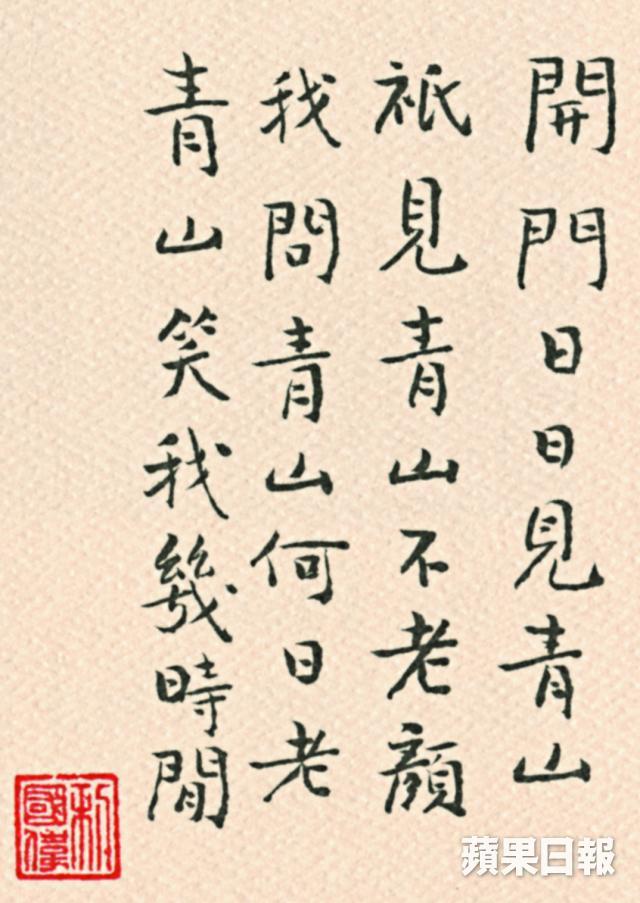 開門日日見青山
祇見青山不老顏
我問青山何日老
青山笑我幾時閒
利國偉
蘋果日報